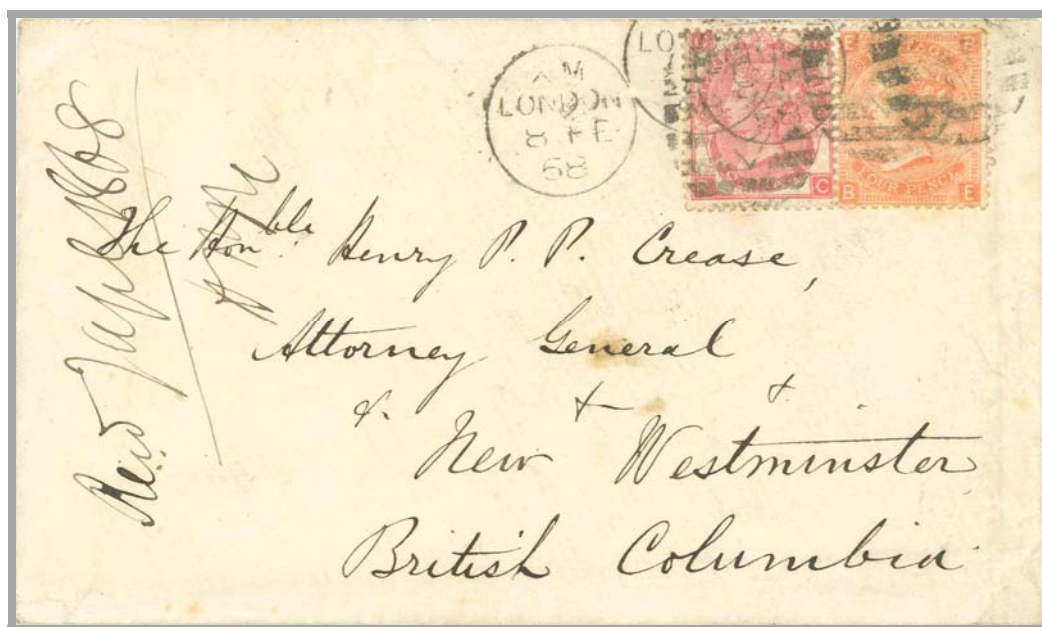 XM
LONDON
8 FE
68
LO
E B
FOUR PENCE
B E
C
The Honble. Henry P. P. Crease,
Attorney General
&. + +
New Westminster
British Columbia